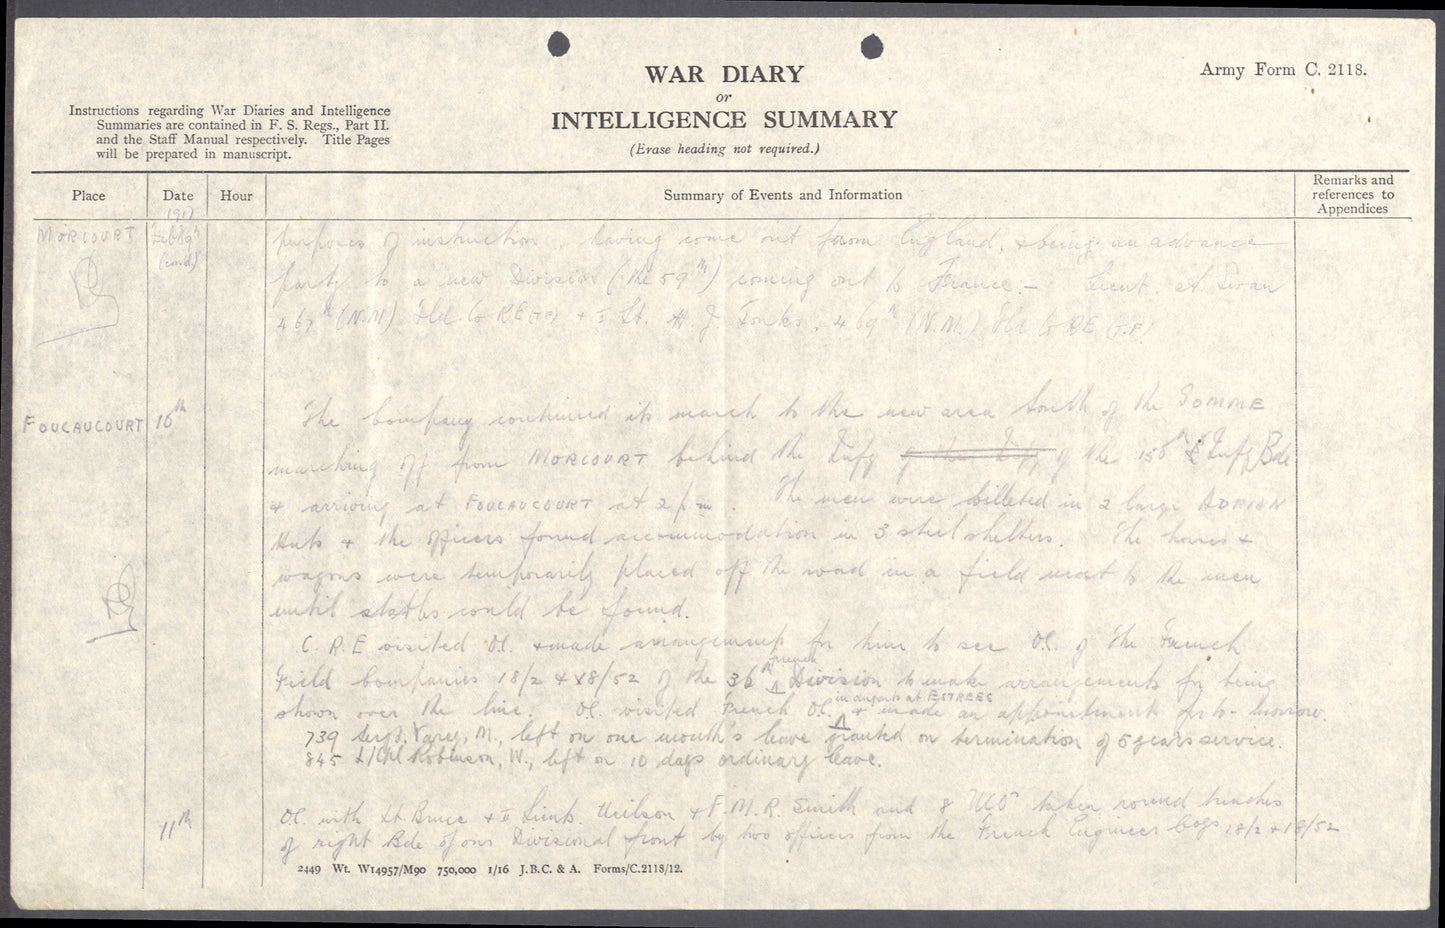 WAR DIARY
or
INTELLIGENCE SUMMARY
(Erase heading not required.)
Army Form C. 2118.
Instructions regarding War Diaries and Intelligence
Summaries are contained in F. S. Regs., Part II.
and the Staff Manual respectively. Title Pages
will be prepared in manuscript.
Place
Date
Hour
Summary of Events and Information
Remarks and
references to
Appendices
1917
MORCOURT Feb 9th purposes of instruction, having come out from England, & being an advance
(contd) party to a new Division (the 59th) coming out to France. – Lieut. A. Swan
467th (N.M) Fld Co RE (T.F) + II Lt. H. J. Tonks, 469th (N.M.) Fld Co RE (T.F.)
FOUCAUCOURT 10th The Company continued its march to the new area South of the SOMME
marching off from MORCOURT behind the Infy of the Infy of the 150th Infy Bde
& arriving at FOUCAUCOURT at 2 pm. The men were billeted in 2 large ADRIAN
Huts & the officers found accommodation in 3 steel shelters. The horses &
wagons were temporarily placed off the road in a field next to the men
until stables could be found.
C.R.E visited OC. & made arrangements for him to see OC. of the French
Field Companies 18/2 & 18/52 of the 36th French Division to make arrangements for being
shown over the line. OC. visited French OC. in dugouts at ESTREES & made an appointment for to-morrow.
739 Sergt. Varey, M., left on one month's leave granted on termination of 5 years service.
845 L/Cpl Robinson, W., left on 10 days ordinary leave.
11th OC. with Lt Bruce & II Lieuts. Neilson & F.M.R. Smith and 8 NCOs taken round trenches
of right Bde of our Divisional front by two officers from the French Engineer Coys 18/2 & 18/52
2449 Wt. W14957/M90 750,000 1/16 J.B.C. & A. Forms/C.2118/12.